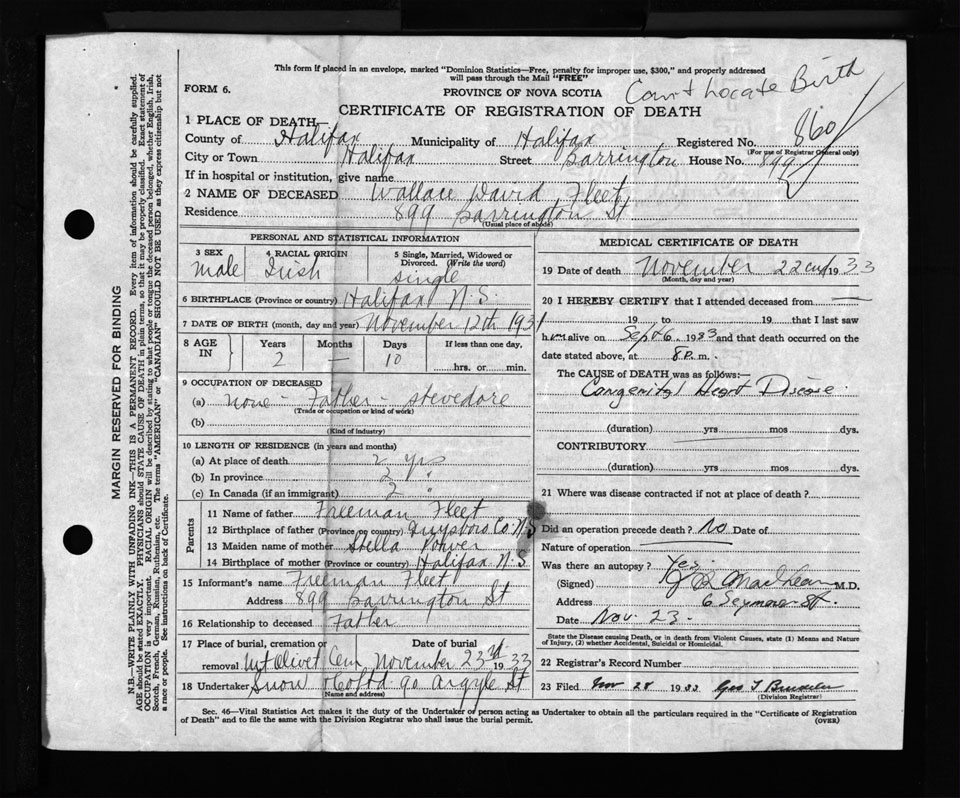 This form if placed in an envelope, marked "Dominion Statistics—Free, penalty for improper use, $300," and properly addressed
will pass through the Mail "FREE"
FORM 6.
PROVINCE OF NOVA SCOTIA
Can't Locate Birth
CERTIFICATE OF REGISTRATION OF DEATH
1 PLACE OF DEATH—
County of Halifax Municipality of Halifax Registered No. 860
(For use of Registrar General only)
City or Town Halifax Street Barrington House No. 899
If in hospital or institution, give name
2 NAME OF DECEASED Wallace David Fleet
Residence 899 Barrington St
(Usual place of abode)
PERSONAL AND STATISTICAL INFORMATION
3 SEX Male
4 RACIAL ORIGIN Irish
5 Single, Married, Widowed or Divorced. (Write the word) Single
6 BIRTHPLACE (Province or country) Halifax N.S.
7 DATE OF BIRTH (month, day and year) November 12th 1931
8 AGE IN Years 2 Months — Days 10 If less than one day, hrs. or min.
9 OCCUPATION OF DECEASED
(a) none - Father - stevedore
(Trade or occupation or kind of work)
(b)
(Kind of industry)
10 LENGTH OF RESIDENCE (in years and months)
(a) At place of death 2 yrs
(b) In province 2 "
(c) In Canada (if an immigrant) 2 "
Parents
11 Name of father Freeman Fleet
12 Birthplace of father (Province or country) Guysboro Co. N.S
13 Maiden name of mother Stella Power
14 Birthplace of mother (Province or country) Halifax N.S
15 Informant's name Freeman Fleet
Address 899 Barrington St
16 Relationship to deceased Father
17 Place of burial, cremation or removal Mt Olivet Cem Date of burial November 23rd 1933
18 Undertaker Snow & Co Ltd 90 Argyle St
(Name and address)
MEDICAL CERTIFICATE OF DEATH
19 Date of death November 22nd 1933
(Month, day and year)
20 I HEREBY CERTIFY that I attended deceased from
19 to 19 that I last saw
him alive on Sept 6 1933 and that death occurred on the
date stated above, at 8 P. m.
The CAUSE of DEATH was as follows:—
Congenital Heart Disease
(duration) yrs mos dys.
CONTRIBUTORY
(duration) yrs mos dys.
21 Where was disease contracted if not at place of death?
Did an operation precede death? No Date of
Nature of operation
Was there an autopsy? Yes.
(Signed) MacLean M.D.
Address 6 Seymour St.
Date Nov. 23.
State the Disease causing Death, or in death from Violent Causes, state (1) Means and Nature
of Injury, (2) whether Accidental, Suicidal or Homicidal.
22 Registrar's Record Number
23 Filed Nov 28 1933 Geo T
(Division Registrar)
Sec. 46—Vital Statistics Act makes it the duty of the Undertaker or person acting as Undertaker to obtain all the particulars required in the "Certificate of Registration
of Death" and to file the same with the Division Registrar who shall issue the burial permit.
(OVER)
MARGIN RESERVED FOR BINDING
N.B.—WRITE PLAINLY WITH UNFADING INK—THIS IS A PERMANENT RECORD. Every item of information should be carefully supplied.
AGE should be stated EXACTLY. PHYSICIANS should STATE CAUSE OF DEATH in plain terms, so that it may be properly classified. Exact statement of
OCCUPATION is very important. RACIAL ORIGIN will be described by stating to what people or tongue the deceased person belonged, whether English, Irish,
Scotch, French, German, Russian, Ruthenian, etc. The terms "AMERICAN" or "CANADIAN" SHOULD NOT BE USED as they express citizenship but not
a race or people. See instructions on back of Certificate.